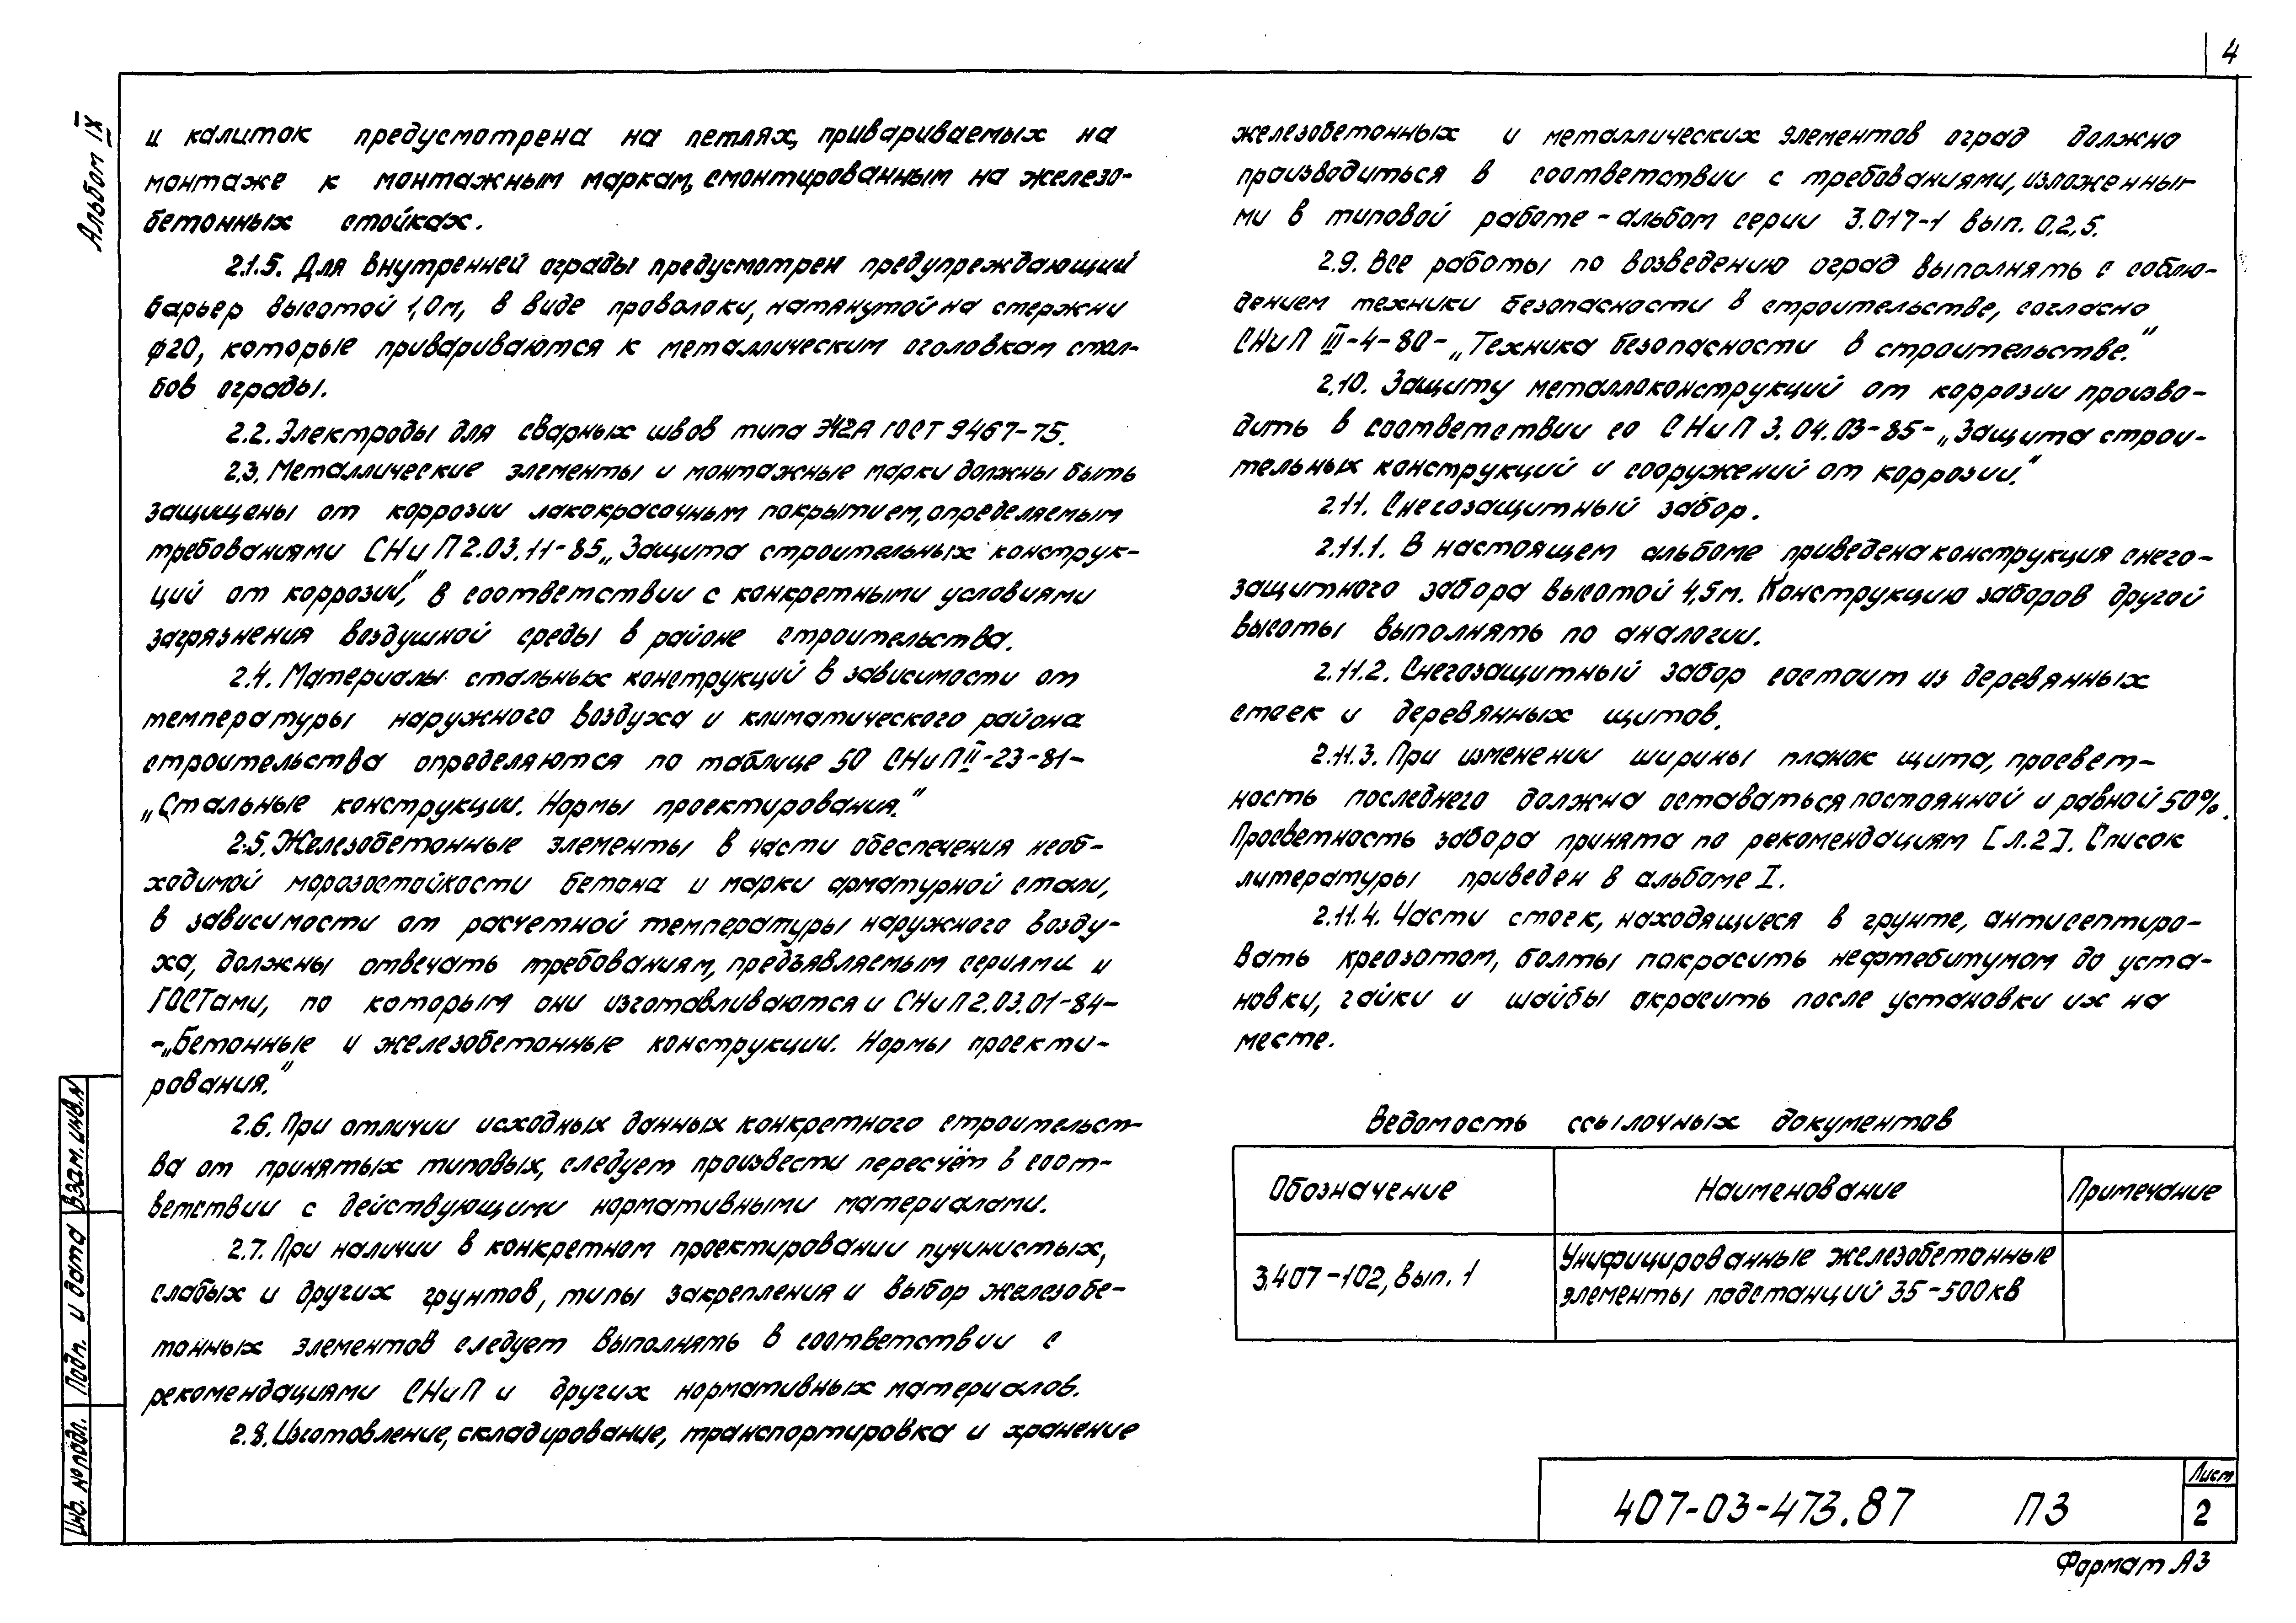 4
Альбом IX
и калиток предусмотрена на петлях, привариваемых на
монтаже к монтажным маркам, смонтированным на железо-
бетонных стойках.
2.1.5. Для внутренней ограды предусмотрен предупреждающий
барьер высотой 1,0м, в виде проволоки, натянутой на стержни
ф20, которые привариваются к металлическим оголовкам стол-
бов ограды.
2.2. Электроды для сварных швов типа Э42А ГОСТ 9467-75.
2.3. Металлические элементы и монтажные марки должны быть
защищены от коррозии лакокрасочным покрытием, определяемым
требованиями СНиП 2.03.11-85 „Защита строительных конструк-
ций от коррозии“, в соответствии с конкретными условиями
загрязнения воздушной среды в районе строительства.
2.4. Материалы стальных конструкций в зависимости от
температуры наружного воздуха и климатического района
строительства определяются по таблице 50 СНиП II-23-81-
„Стальные конструкции. Нормы проектирования.“
2.5. Железобетонные элементы в части обеспечения необ-
ходимой морозостойкости бетона и марки арматурной стали,
в зависимости от расчетной температуры наружного возду-
ха, должны отвечать требованиям, предъявляемым сериями и
ГОСТами, по которым они изготавливаются и СНиП 2.03.01-84-
-„Бетонные и железобетонные конструкции. Нормы проекти-
рования.“
2.6. При отличии исходных данных конкретного строительст-
ва от принятых типовых, следует произвести пересчём в соот-
ветствии с действующими нормативными материалами.
2.7. При наличии в конкретном проектировании пучинистых,
слабых и других грунтов, типы закрепления и выбор железобе-
тонных элементов следует выполнять в соответствии с
рекомендациями СНиП и других нормативных материалов.
2.8. Изготовление, складирование, транспортировка и хранение
железобетонных и металлических элементов оград должно
производиться в соответствии с требованиями, изложенны-
ми в типовой работе - альбом серии 3.017-1 вып. 0,2,5.
2.9. Все работы по возведению оград выполнять с соблю-
дением техники безопасности в строительстве, согласно
СНиП III-4-80- „Техника безопасности в строительстве.“
2.10. Защиту металлоконструкций от коррозии произво-
дить в соответствии со СНиП 3.04.03-85- „Защита строи-
тельных конструкций и сооружений от коррозии.“
2.11. Снегозащитный забор.
2.11.1. В настоящем альбоме приведена конструкция снего-
защитного забора высотой 4,5м. Конструкцию заборов другой
высоты выполнять по аналогии.
2.11.2. Снегозащитный забор состоит из деревянных
стоек и деревянных щитов.
2.11.3. При изменении ширины планок щита, просвет-
ность последнего должна оставаться постоянной и равной 50%.
Просветность забора принята по рекомендациям [Л.2]. Список
литературы приведен в альбоме I.
2.11.4. Части стоек, находящиеся в грунте, антисептиро-
вать креозотом, болты покрасить нефтебитумом до уста-
новки, гайки и шайбы окрасить после установки их на
месте.
Ведомость ссылочных документов
Обозначение Наименование Примечание
3.407-102, вып. 1 Унифицированные железобетонные
элементы подстанций 35-500кв
Взам. инв. №
Подп. и дата
Инв. № подл.
407-03-473.87 ПЗ
Лист
2
Формат А3